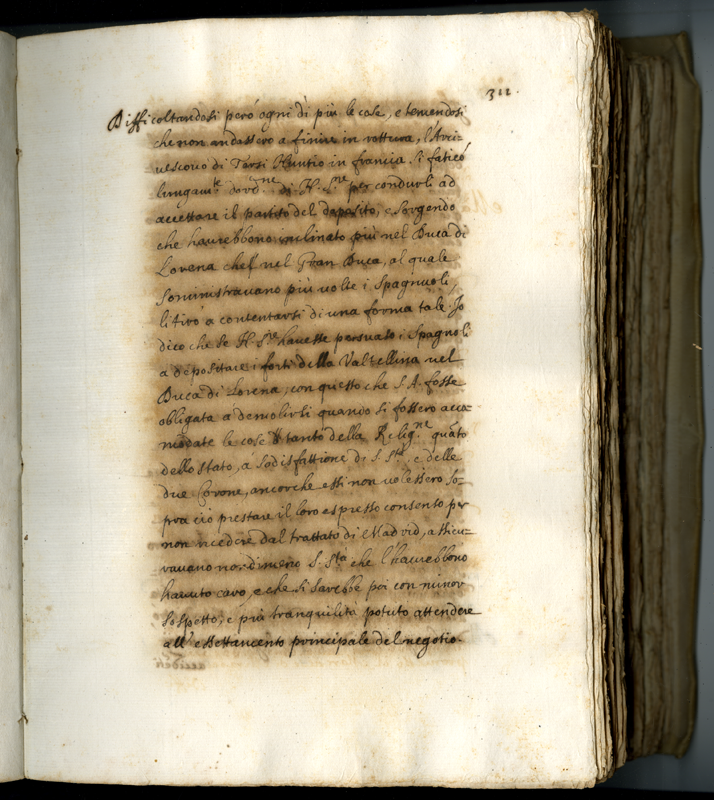 311.
Difficoltandosi però ogni dì più le cose, e temendosi
che non andassero a finire in rottura, l'Arci-
vescovo di Tarsi Nuntio in francia si faticò
lungam.te d'ord.ne di N. S.re per condurli ad
accettare il partito del deposito, e sorgendo
che haurebbono inclinato più nel Duca di
Lorena che nel Gran Duca, al quale
soministravano più volte i Spagnuoli,
li tirò a contentarsi di una forma tale. Io
dico che se N. S.re havesse persuaso i Spagnoli
a depositare i forti della Valtellina nel
Duca di Lorena, con questo che S. A. fosse
obligata a demolirli quando si fossero acco-
modate le cose tanto della Relig.ne quāto
dello stato, a sodisfattione di S. S.tà, e delle
due Corone, ancorche essi non volessero so-
pra ciò prestare il loro espresso consento per
non recedere dal trattato di Madrid, assicu-
ravano nondimeno S. S.tà che l'haurebbono
havuto caro, e che si sarebbe poi con minor
sospetto, e più tranquilità potuto attendere
all' assettamento principale del negotio.